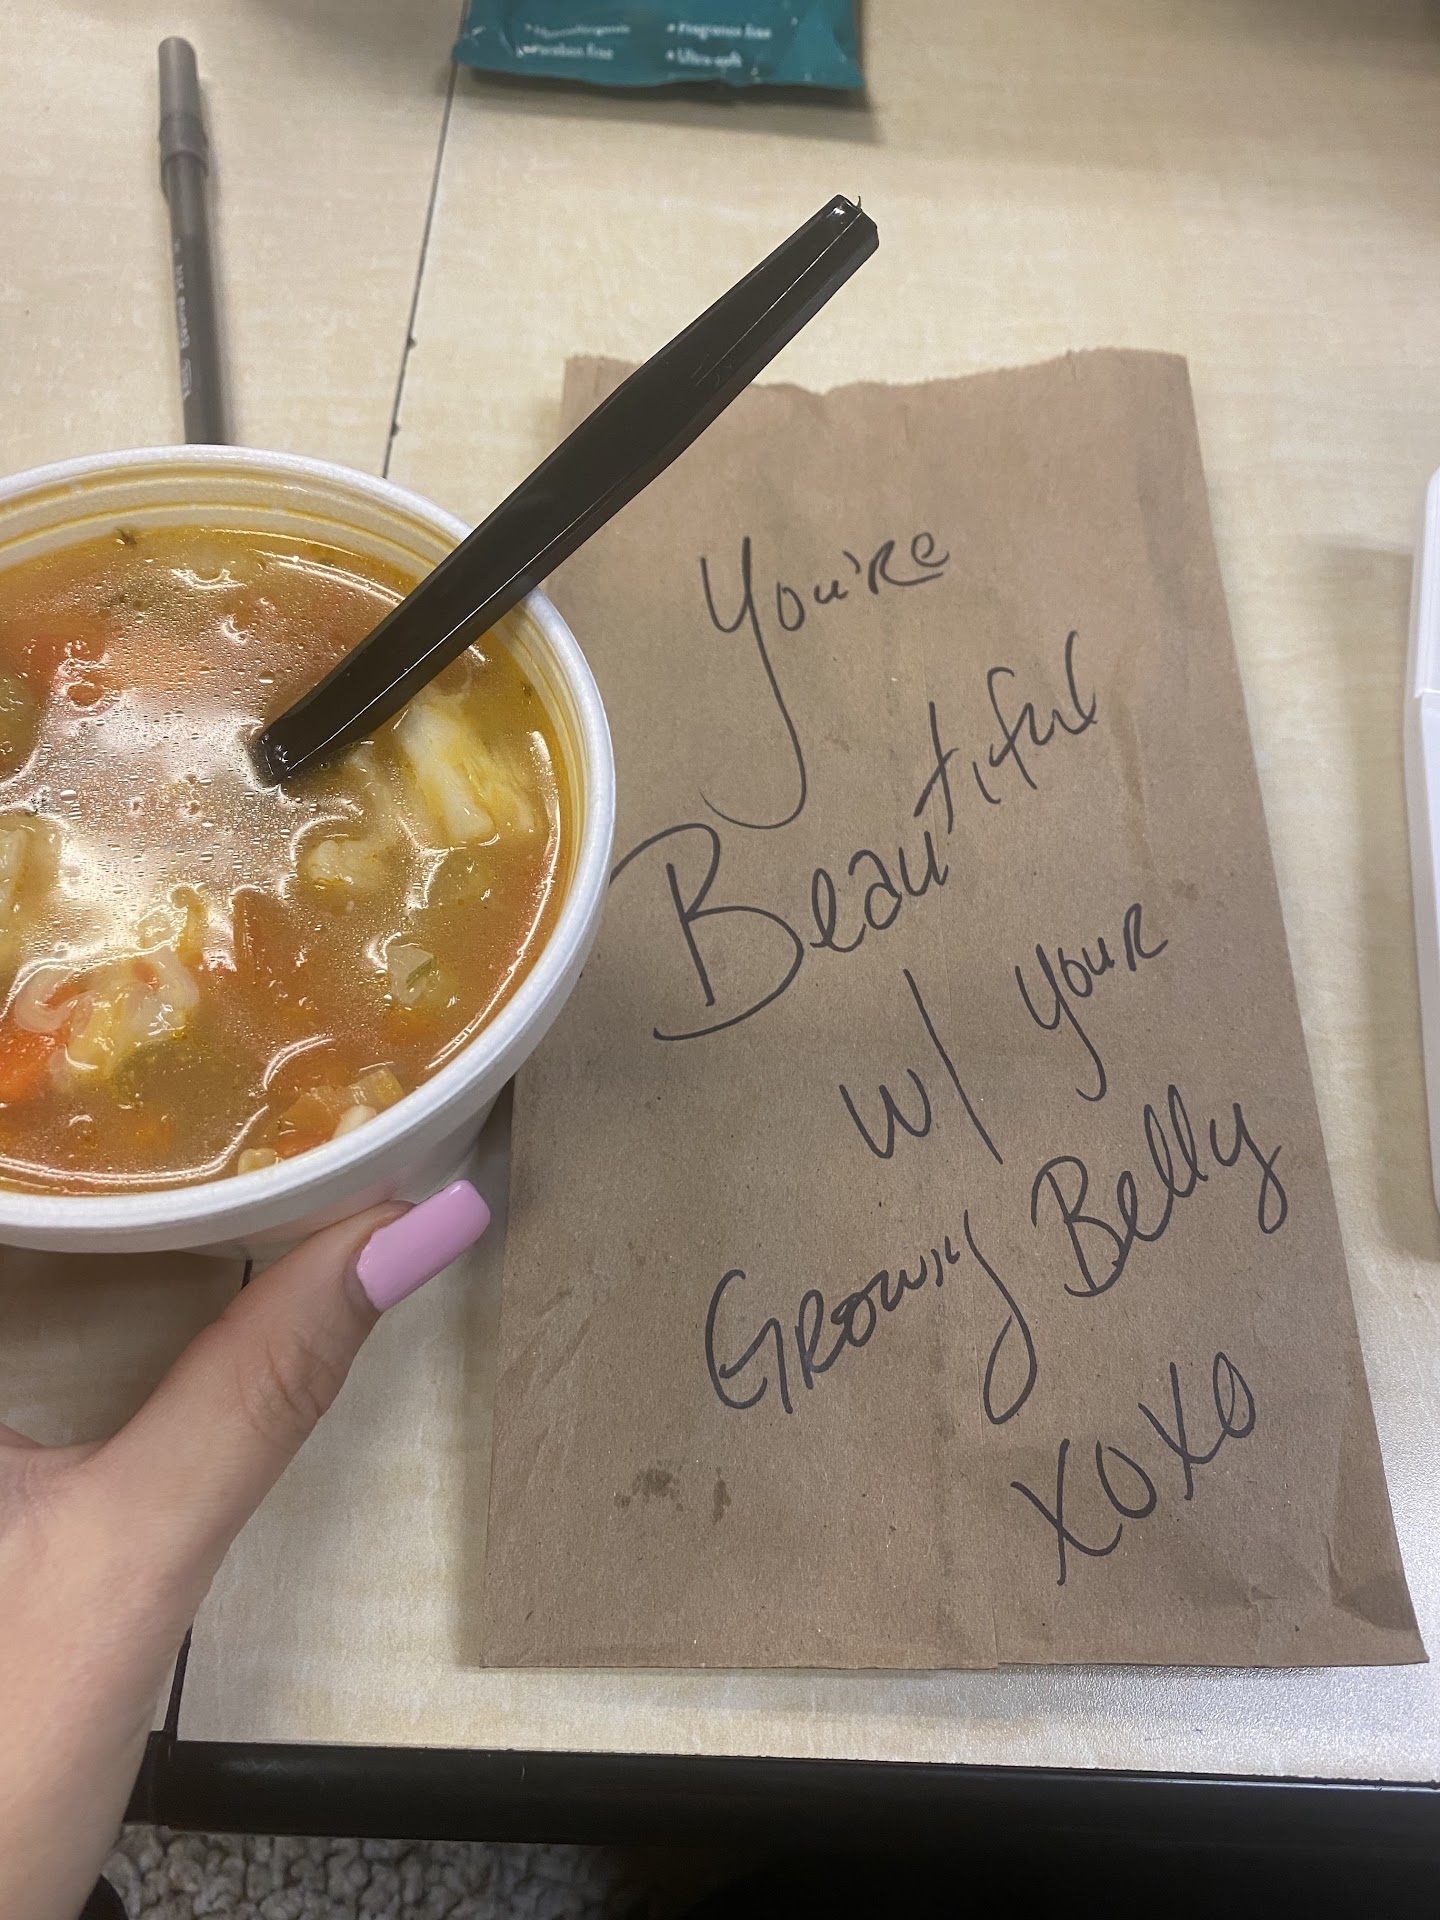 • Hypoallergenic
• Paraben free
• Fragrance free
• Ultra-soft
You're
Beautiful
w/ your
Growing Belly
XOXO